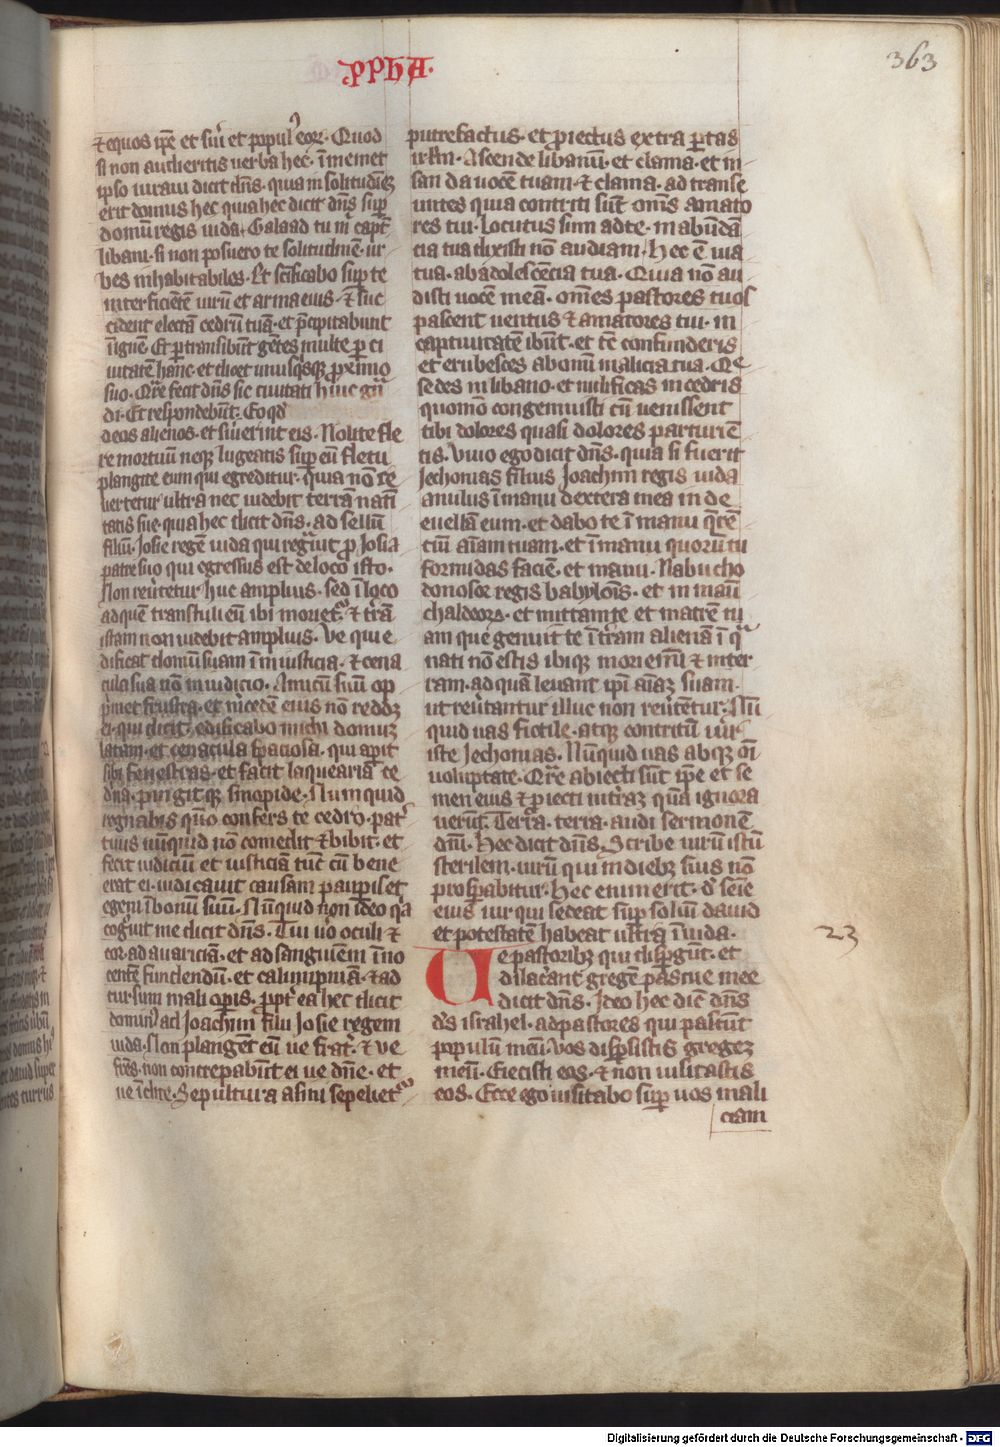 PPHA.
363
⁊ equos ip̄e et s̄ui et populꝰ eoꝝ. Quod
si non audieritis uerba hec. ī memet
ipso iuraui dicit dn̄s. quia in solitudinē
erit domus hec quia hec dicit dn̄s sup̄
domū regis iuda. Galaad tu m̄ capt̄
libani. si non posuero te solitudinē. ur
bes inhabitabiles. Et sc̄ificabo sup̄ te
interficientē uirū et arma eius. ⁊ suc
cident electā cedrū tuā. et p̄cipitabunt
ī ignē. Et ꝑtransibunt gētes multe ꝑ ci
uitatē hanc. et dicet unusqͥsqꝫ ꝓximo
suo. Qr̄e fecit dn̄s sic ciuitati huic gͣn
di. Et respondebūt. Eo qd̓
deos alienos. et s̄uierint eis. Nolite fle
re mortuū neqꝫ lugeatis sup̄ eū fletu
plangite eum qui egreditur. quia nō re
uertetur ultra nec uidebit terrā natī
tatis sue. quia hec dicit dn̄s. ad sellū
filiū. Josie regē iuda qui regͣuit ꝓ Josia
patre suo qui egressus est de loco isto.
Non reūtetur huc amplius. sed ī loco
ad quē transtuli eū ibi moriet᷑. ⁊ t̄rā
istam non uidebit amplius. Ve qui e
dificat domū suam ī iniusticia. ⁊ cena
cula sua nō in iudicio. Amicū suū op
p̄met frustra. et m̄cedē eius nō reddꝫ
ei. qui dicit. edificabo michi domuꝫ
latam. et cenacula spaciosa. qui ap̄it
sibi fenestras. et facit laquearia ce
drīa. pīngitqꝫ sinopide. Numquid
regnabis quō confers te cedro. pat̄
tuus nūquid nō comedit ⁊ bibit. et
fecit iudiciū et iusticiā tūc cū bene
erat ei. iudicauit causam pauꝑis et
egeni ī bonum suū. Nūquid non ideo qͥa
cogͦuit me dicit dn̄s. Tui u̓o oculi ⁊
cor ad auariciā. et ad sanguinem īno
centē fundendū. et calūpniā. ⁊ ad
cursum mali oꝑis. ꝓpt̄ ea hec dicit
dominꝰ ad Joachim filiū Josie regem
iuda. Non plangēt eū ue frat̄. ⁊ ue
soror. non concrepabūt ei ue dn̄e. et
ue īclite. Sepultura asini sepeliet᷑
putrefactus. et ꝓiectus extra portas
irl̄m. Ascende libanū. et clama. et in
san da uocē tuam. ⁊ clama. ad transe
untes quia contriti sūt om̄s amato
res tui. Locutus sum ad te. in abūdā
cia tua dixisti nō audiam. Hec ē uia
tua. ab adolescēcia tua. Quia nō au
disti uocē meā. om̄es pastores tuos
pascent uentus ⁊ amatores tui. in
captiuitatē ibūt. et tē confunderis
et erubesces ab omī malicia tua. Qͤ
sedes in libano. et nidificas in cedris
quomō congemuisti cū uenissent
tibi dolores quasi dolores parturiē
tis. Viuo ego dicit dn̄s. quia si fuerit
Jechonias filius Joachim regis iuda
anulus ī manu dextera mea inde
euellā eum. et dabo te ī manu qͥ̄rē
ciū aīam tuam. et ī manu quorū tu
formidas faciē. et manu. Nabucho
donosor regis babylōis. et in manū
chaldeoꝝ. et mittam te et matrē tu
am que genuit te ī t̄ram alienā ī qͣ
nati nō estis ibiqꝫ moriem̄ī ⁊ in ter
ram. ad quā leuant ip̄i aīaꝫ suam.
ut reūtantur illuc non reūtetur. Nū
quid uas fictile. atqꝫ contritū uir
iste Jechonias. Nūquid uas absqꝫ oī
uoluptate. Qr̄e abiecti sūt ip̄e et se
men eius ⁊ ꝓiecti in t̄raꝫ quā ignora
uerūt. Terra. terra. audi sermonē
dn̄i. Hec dicit dn̄s. Scribe uirū istū
sterilem. uirū qui in diebꝫ suis nō
prosꝑabitur. Hec enim erit. d̓ seīe
eius uir qui sedeat sup̄ soliū dauid
et potestatē habeat ultra ī iuda.
23
Ue pastoribꝫ qui disꝑgūt. et
dilac̄ant gregē pascue mee
dicit dn̄s. Ideo hec dic̄ dn̄s
d̄s israhel. ad pastores qui pascūt
populū meū. Vos disꝑsistis gregeꝫ
meū. Eiecisti eos. ⁊ non uisitastis
eos. Ecce ego uisitabo sup̄ uos mali
ciam
Digitalisierung gefördert durch die Deutsche Forschungsgemeinschaft - DFG